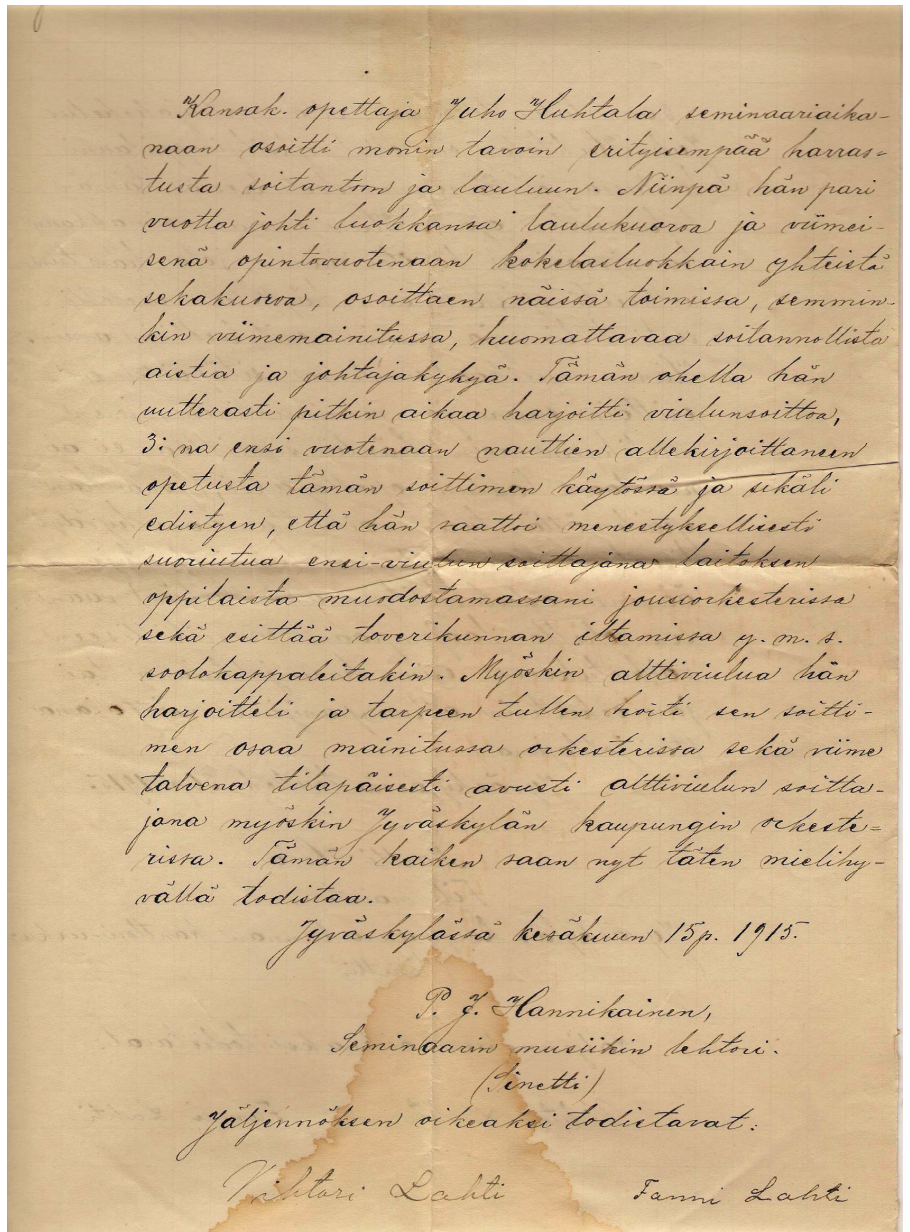 Kansak. opettaja Juho Huhtala seminaariaika-
naan osoitti monin tavoin erityisempää harras-
tusta soitantoon ja lauluun. Niinpä hän pari
vuotta johti luokkansa laulukuoroa ja viimei-
senä opintovuotenaan kokelasluokkain yhteistä
sekakuoroa, osoittaen näissä toimissa, semmin-
kin viimemainitussa, huomattavaa soitannollista
aistia ja johtajakykyä. Tämän ohella hän
uutterasti pitkin aikaa harjoitti viulunsoittoa,
3:na ensi vuotenaan nauttien allekirjoittaneen
opetusta tämän soittimen käytössä ja sikäli
edistyen, että hän saattoi menestyksellisesti
suoriutua ensi-viulun soittajana laitoksen
oppilaista muodostamassani jousiorkesterissa
sekä esittää toverikunnan iltamissa y. m. s.
soolokappaleitakin. Myöskin alttiviulua hän
harjoitteli ja tarpeen tullen hoiti sen soitti-
men osaa mainitussa orkesterissa sekä viime
talvena tilapäisesti avusti alttiviulun soitta-
jana myöskin Jyväskylän kaupungin orkeste-
rissa. Tämän kaiken saan nyt täten mielihy-
vällä todistaa.
Jyväskylässä kesäkuun 15p. 1915.
P. J. Hannikainen,
Seminaarin musiikin lehtori.
(Sinetti)
Jäljennöksen oikeaksi todistavat:
Vihtori Lahti Fanni Lahti